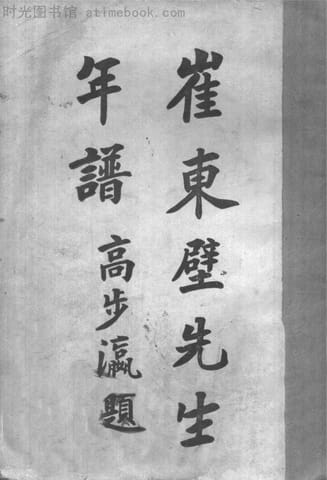 时光图书馆 - atimebook.com
崔東壁先生
年譜 高步瀛題